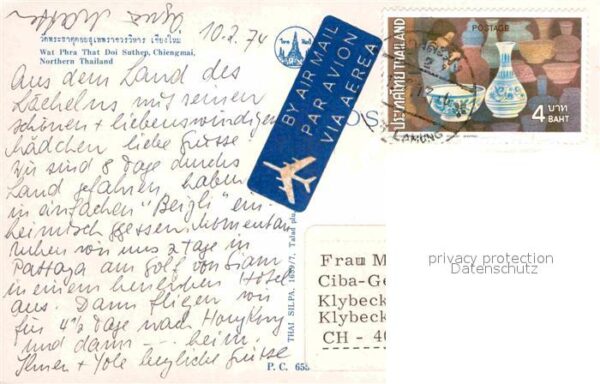 10.2.74
วัดพระธาตุดอยสุเทพราชวรวิหาร เชียงใหม่
Wat Phra That Doi Suthep, Chiengmai,
Northern Thailand
Aus dem Land des
Lächelns mit seinen
schönen + liebenswürdigen
Mädchen liebe Grüsse.
Wir sind 8 Tage durchs
Land gefahren, haben
in einfachen "Beizli" ein-
heimisch gegessen, momentan
ruhen wir uns 2 Tage in
Pattaya am Golf von Siam
in einem herrlichen Hotel
aus. Dann fliegen wir
für 4½ Tage nach HongKong
und dann --- heim.
Ihnen + Yole herzliche Grüsse
BY AIR MAIL
PAR AVION
VIA AEREA
POSTAGE
ประเทศไทย THAILAND
4 บาท
BAHT
THAI SILPA, 1659/7,
P. C. 655
Frau M
Ciba-Ge
Klybeck
Klybeck
CH - 40
privacy protection
Datenschutz